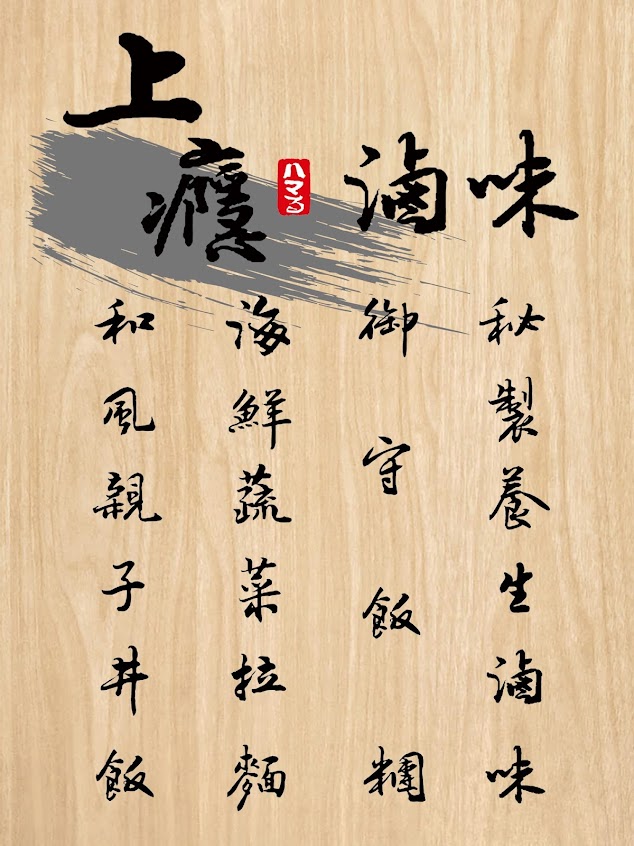 上癮
ハマる
滷味
秘製養生滷味
御守飯糰
海鮮蔬菜拉麵
和風親子井飯